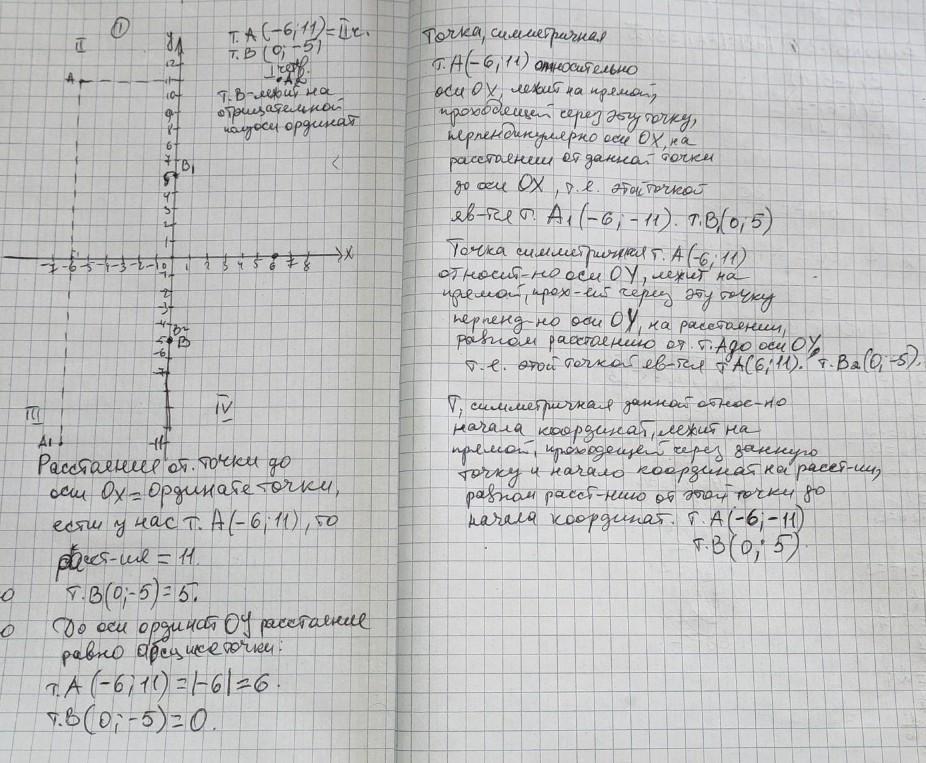 ①
II
у
т. А(-6; 11) = II ч.
т. В(0; -5)
I четв.
А2
т. В - лежит на
отрицательной
полуоси ординат
12
11
10
9
8
6
7
5
4
3
2
1
А
В1
-7 -6 -5 -4 -3 -2 -1 0 1 2 3 4 5 6 7 8 х
-1
-2
-3
-4
-5
-6
-7
В2
В
III
IV
А1
-11
Расстаение от. точки до
оси Ох = ординате точки,
если у нас т. А(-6; 11), то
расст-ие = 11.
т. В(0; -5) = 5.
До оси ординат ОУ расстаение
равно абсциссе точки:
т. А(-6; 11) = |-6| = 6.
т. В(0; -5) = 0.
Точка, симметричная
т. А(-6; 11) относительно
оси ОХ, лежит на прямой,
проходещей через эту точку,
перпендикулярно оси ОХ, на
расстаении от данной точки
до оси ОХ, т.е. этой точкой
яв-тся т. А1(-6; -11). т. В1(0; 5)
Точка симметричная т. А(-6; 11)
относит-но оси ОУ, лежит на
прямой, прох-ей через эту точку
перпенд-но оси ОУ, на расстаении,
равном расстаению от т. А до оси ОУ,
т.е. этой точкой яв-тся т А(6; 11). т. В2(0; -5).
Т, симметричная данной относ-но
начала координат, лежит на
прямой, проходещей через данную
точку и начало координат на расст-ии,
равном расст-нию от этой точки до
начала координат. т. А(-6; -11)
т. В(0; 5).